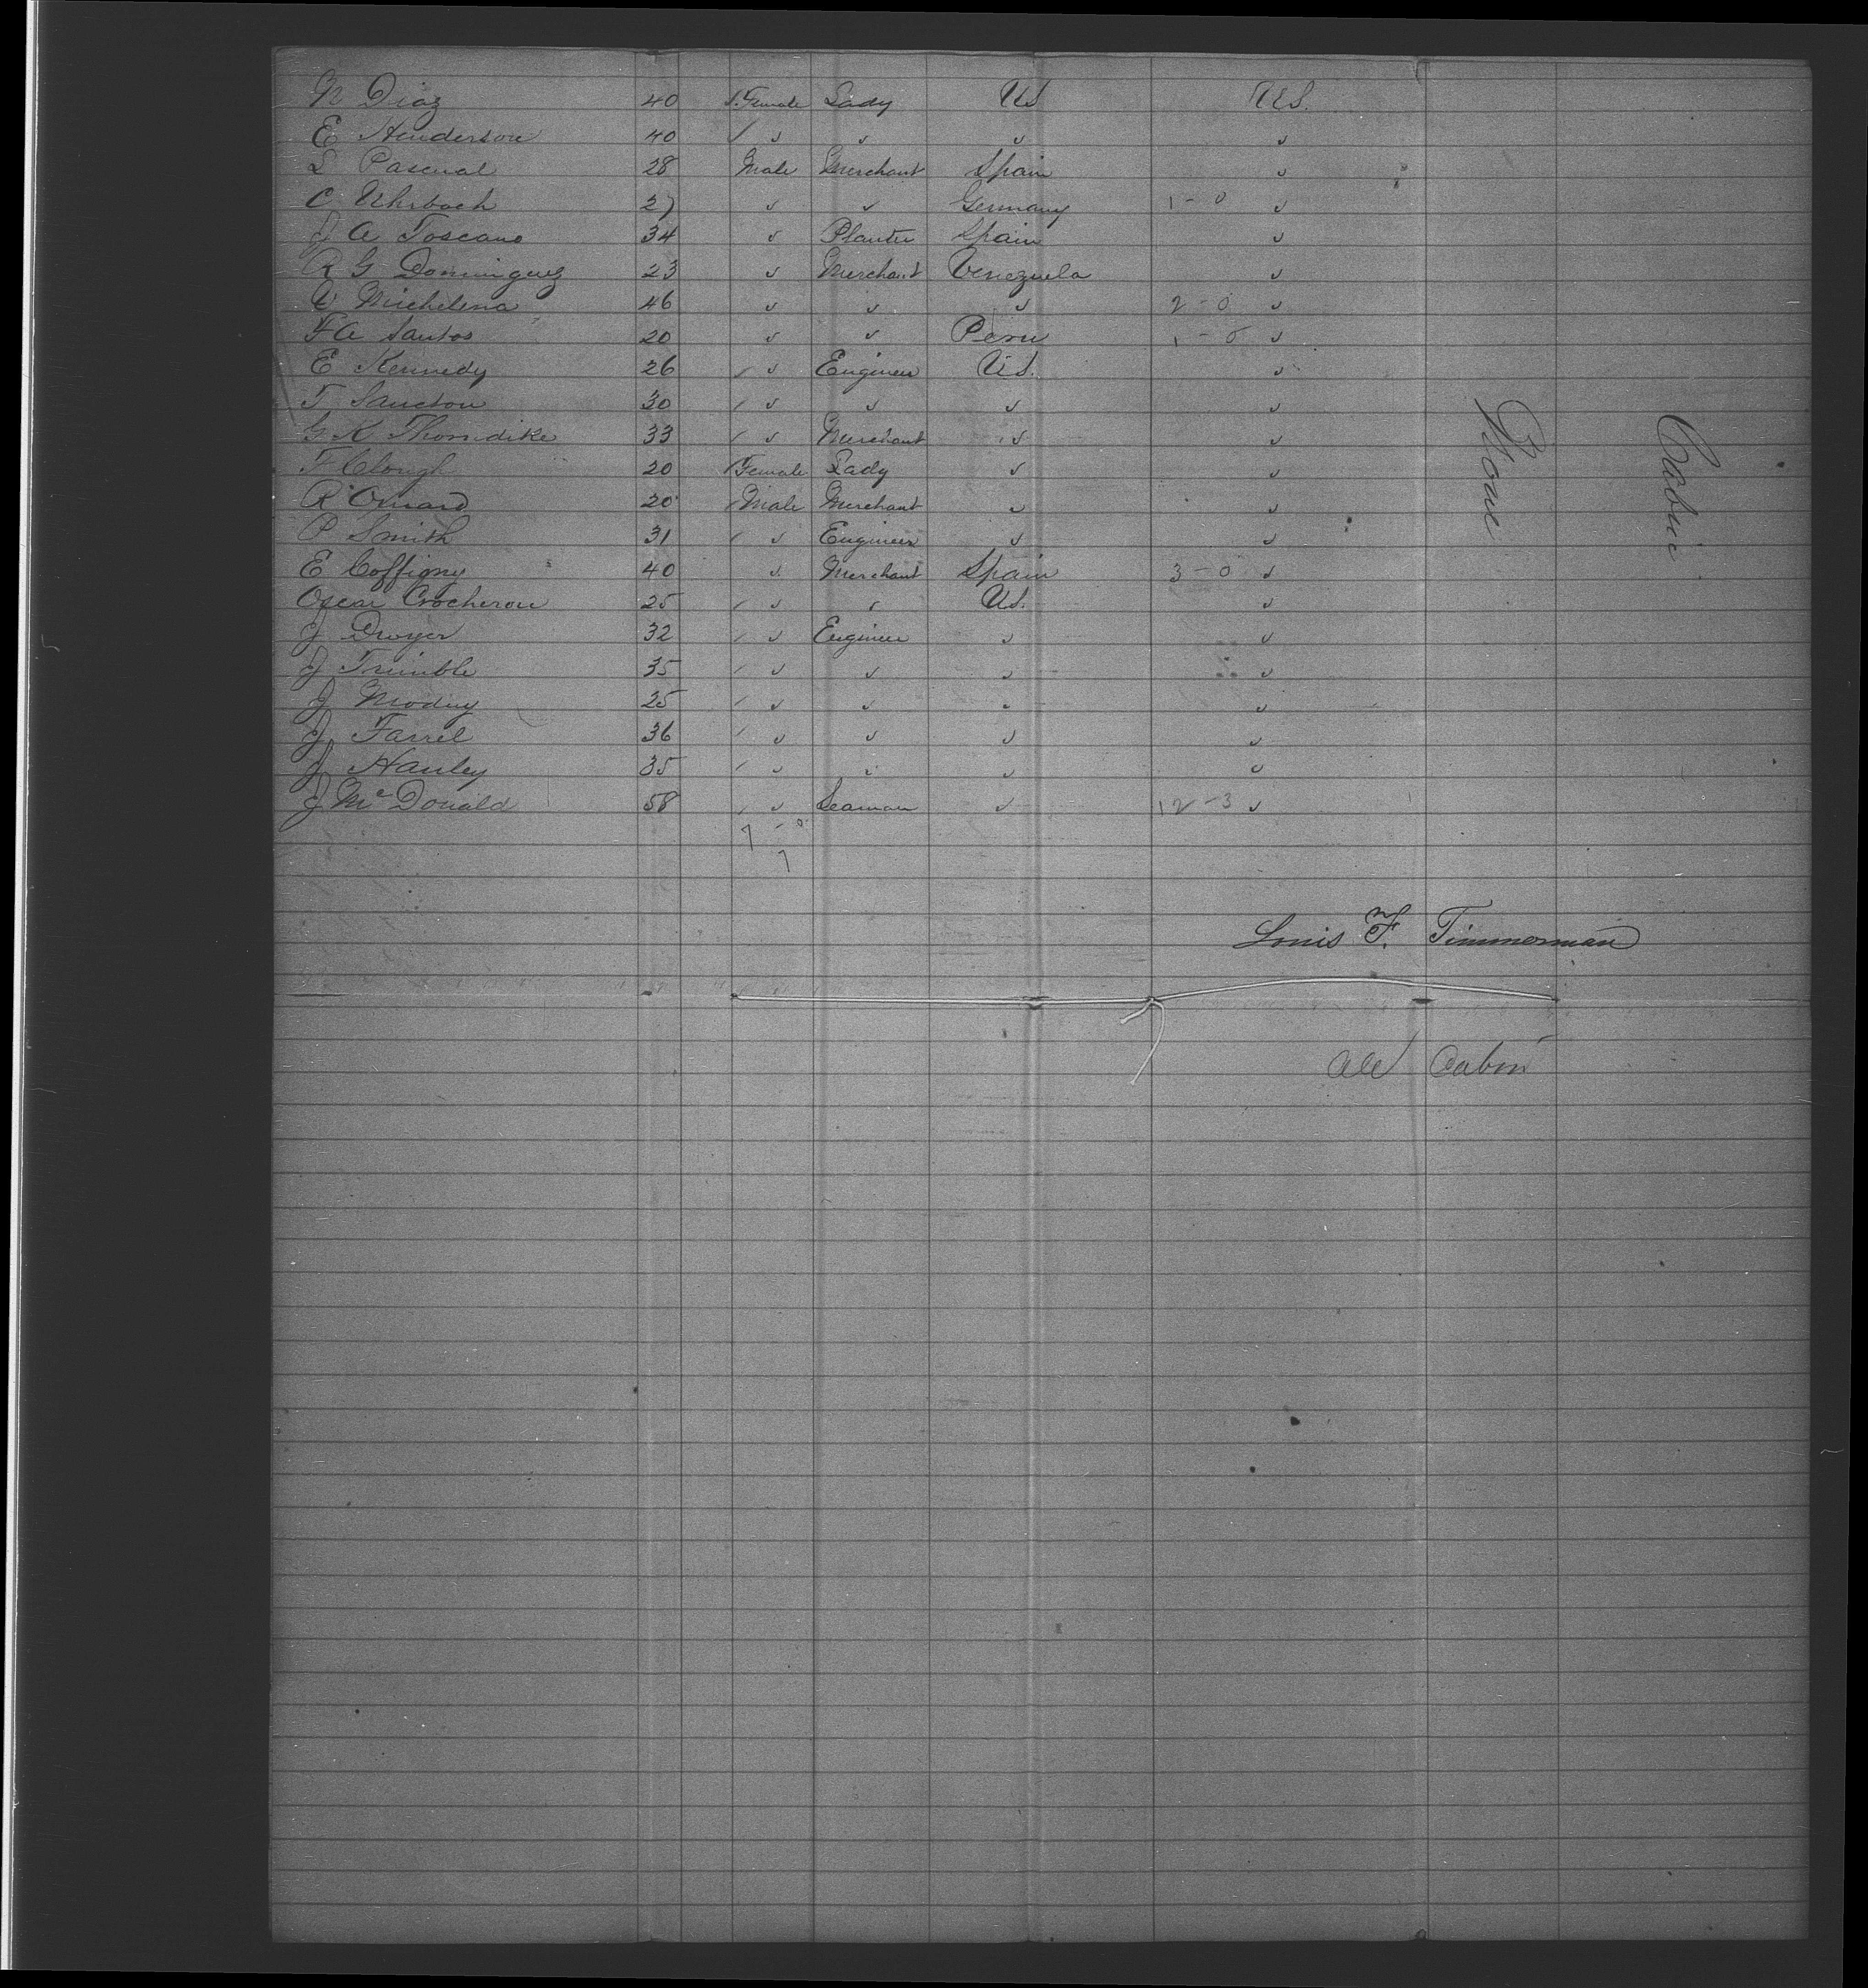 N Diaz 40 Female Lady US U.S.
E Henderson 40 / ✓ ✓ ✓ ✓
L Pascual 28 Male Merchant Spain ✓
C Uhrbach 27 ✓ ✓ Germany 1-0 ✓
J A Toscano 34 ✓ Planter Spain ✓
R G Dominguez 23 ✓ Merchant Venezuela ✓
Michelena 46 ✓ ✓ ✓ 2-0 ✓
F A Santos 20 ✓ ✓ Peru 1-0 ✓
E Kennedy 26 / ✓ Engineer U.S. ✓
T Sancton 30 / ✓ ✓ ✓ ✓
G K Thorndike 33 / ✓ Merchant ✓ ✓
F Clough 20 / Female Lady ✓ ✓
R 20 / Male Merchant ✓ ✓
P Smith 31 / ✓ Engineer ✓ ✓
E Coffigny 40 ✓ Merchant Spain 3-0 ✓
Oscar Crocheron 25 / ✓ ✓ U.S. ✓
J Dwyer 32 / ✓ Engineer ✓ ✓
J Trimble 35 / ✓ ✓ ✓ ✓
J 25 / ✓ ✓ ✓ ✓
J Farrel 36 / ✓ ✓ ✓ ✓
J Hanley 35 / ✓ ✓ ✓ ✓
J McDonald 58 / ✓ Seaman ✓ 12-3 ✓
None
Cabin
7-0
7
Louis F. Timmerman
All Cabin